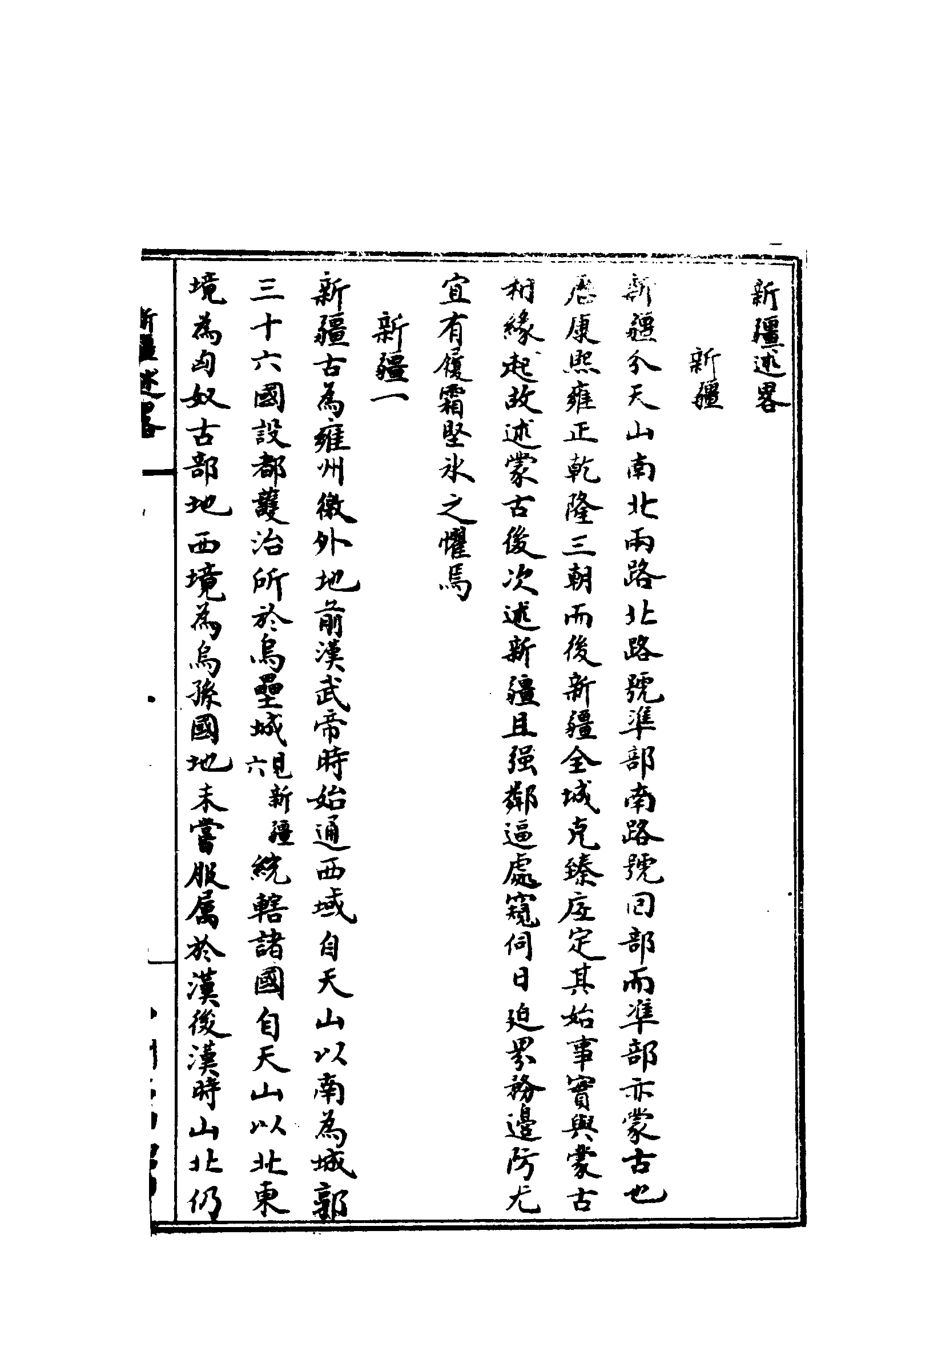 新疆述畧
新疆
新疆分天山南北兩路北路號準部南路號回部而準部亦蒙古也
歷康熙雍正乾隆三朝而後新疆全城克臻底定其始事實與蒙古
相緣起故述蒙古後次述新疆且强鄰逼處窺伺日迫界務邊防尤
宜有履霜堅氷之懼焉
新疆一
新疆古為雍州徼外地前漢武帝時始通西域自天山以南為城郭
三十六國設都護治所於烏壘城見新疆六統轄諸國自天山以北東
境為匈奴古部地西境為烏孫國地未嘗服属於漢後漢時山北仍
新疆述畧
一